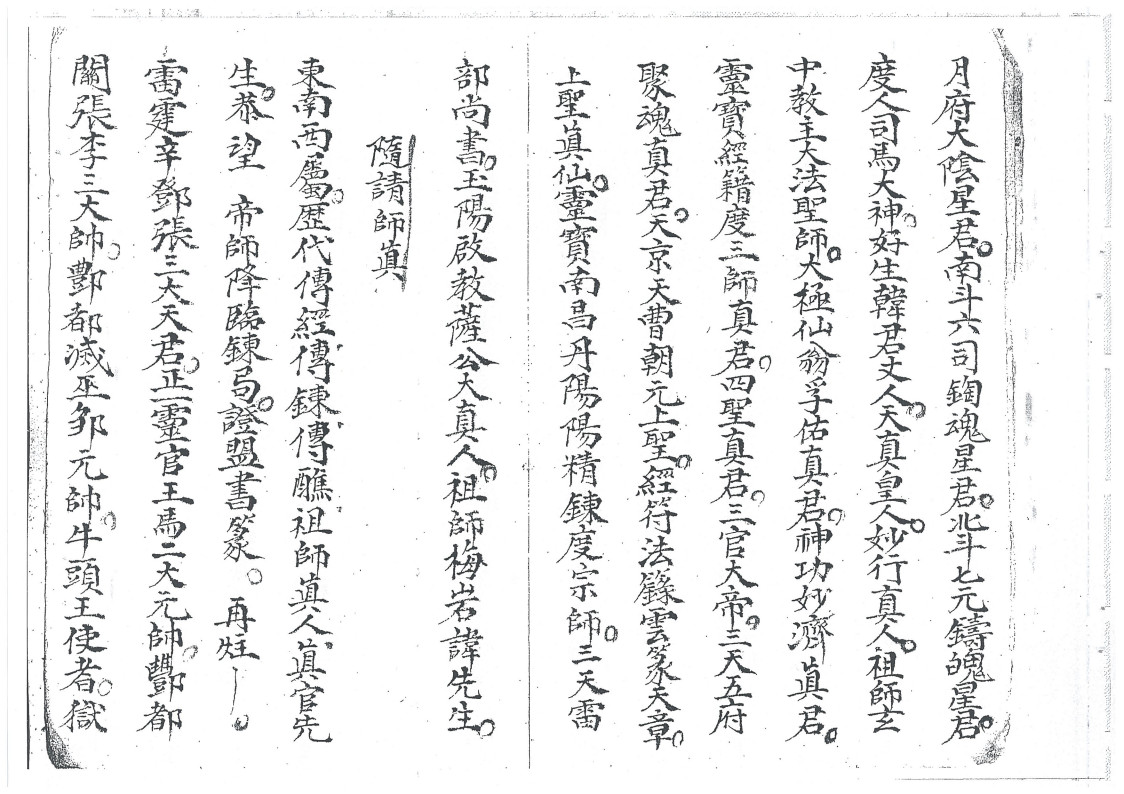 月府大陰星君。南斗六司鍧魂星君。北斗七元鑄魄星君。
度人司馬大神。好生韓君丈人。天真皇人。妙行真人。祖師玄
中教主大法聖師。太極仙翁孚佑真君。神功妙濟眞君。
靈寶經籍度三師真君。四聖真君。三官大帝。三天五府
聚魂真君。天京天曹朝元上聖。經符法籙雲篆天章。
上聖眞仙。靈寶南昌丹陽陽精鍊度宗師。三天雷
部尚書。玉陽啟教薩公大真人。祖師梅岩諱先生。
隨請師眞
東南西蜀。歷代傳經傳鍊傳醮祖師眞人眞官先
生。恭望 帝師降臨鍊局。證盟書篆。 再炷。
雷霆辛鄧張三大天君。正一靈官王馬二大元帥。酆都
關張李三大帥。酆都滅巫邹元帥。牛頭王使者。獄